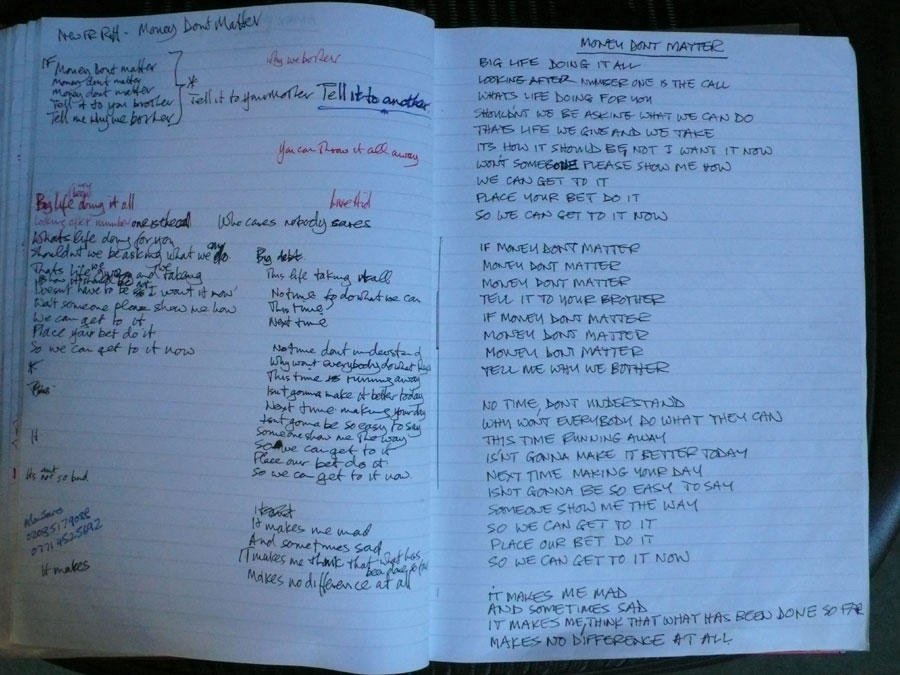 Money Dont Matter
why we bother
IF Money Dont matter
Money dont matter
Money dont matter
Tell it to your brother
Tell me why we bother
* Tell it to your brother Tell it to another
You can throw it all away
Big life doing it all
Looking after number one is the call
Who cares nobody cares
Whats life doing for you
Shouldnt we be asking what we can do
Thats life we give and we taking
I want it now
Wont someone please show me how
We can get to it
Place your bet do it
So we can get to it now
Big debt.
This life taking it all
No time to do what we can
This time
Next time
No time dont understand
Why wont everybody do what they
This time is running away
Isnt gonna make it better today
Next time making your day
Isnt gonna be so easy to say
Someone show me the way
So we can get to it
Place our bet do it
So we can get to it now.
Its not so bad
It makes
It makes me mad
And sometimes sad
IT makes me think that what has
been done so far
Makes no difference at all
MONEY DONT MATTER
BIG LIFE DOING IT ALL
LOOKING AFTER NUMBER ONE IS THE CALL
WHATS LIFE DOING FOR YOU
SHOULDN'T WE BE ASKING WHAT WE CAN DO
THATS LIFE WE GIVE AND WE TAKE
ITS HOW IT SHOULD BE, NOT I WANT IT NOW
WON'T SOMEONE PLEASE SHOW ME HOW
WE CAN GET TO IT
PLACE YOUR BET DO IT
SO WE CAN GET TO IT NOW
IF MONEY DONT MATTER
MONEY DONT MATTER
MONEY DONT MATTER
TELL IT TO YOUR BROTHER
IF MONEY DONT MATTER
MONEY DONT MATTER
MONEY DONT MATTER
TELL ME WHY WE BOTHER
NO TIME, DONT UNDERSTAND
WHY WONT EVERYBODY DO WHAT THEY CAN
THIS TIME RUNNING AWAY
ISN'T GONNA MAKE IT BETTER TODAY
NEXT TIME MAKING YOUR DAY
ISNT GONNA BE SO EASY TO SAY
SOMEONE SHOW ME THE WAY
SO WE CAN GET TO IT
PLACE OUR BET DO IT
SO WE CAN GET TO IT NOW
IT MAKES ME MAD
AND SOMETIMES SAD
IT MAKES ME, THINK THAT WHAT HAS BEEN DONE SO FAR
MAKES NO DIFFERENCE AT ALL